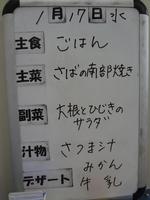 1月17日水
主食 ごはん
主菜 さばの南部焼き
副菜 大根とひじきの
サラダ
汁物 さつま汁
みかん
デザート 牛乳